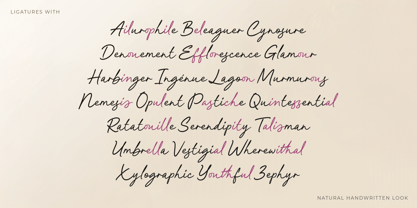 LIGATURES WITH
Ailurophile Beleaguer Cynosure
Denouement Efflorescence Glamour
Harbinger Ingénue Lagoon Murmurous
Nemesis Opulent Pastiche Quintessential
Ratatouille Serendipity Talisman
Umbrella Vestigial Wherewithal
Xylographic Youthful Zephyr
NATURAL HANDWRITTEN LOOK